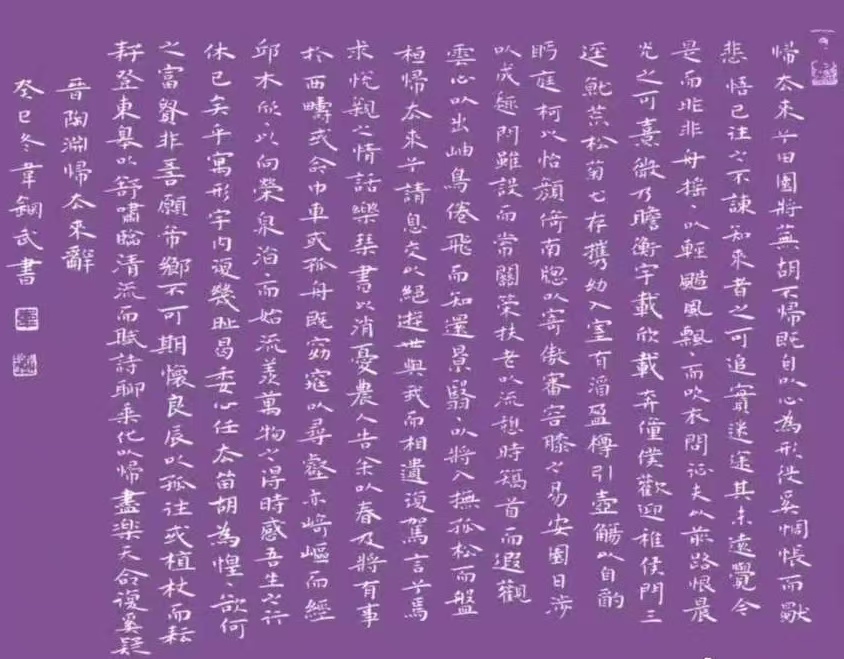 帰去来兮田園將蕪胡不帰既自以心為形役奚惆悵而獨
悲悟已往之不諫知来者之可追實迷途其未遠覺今
是而昨非舟搖〻以輕颺風飄〻而吹衣問征夫以前路恨晨
光之可熹微乃瞻衡宇載欣載奔僮僕歡迎稚侯門三
逕就荒松菊存攜幼入室有酒盈樽引壺觴以自酌
眄庭柯以怡顏倚南窓以寄傲審容膝之易安園日涉
以成趣門雖設而常關策扶老以流憩時矯首而遐觀
雲心以出岫鳥倦飛而知還景翳〻以將入撫孤松而盤
桓帰去来兮請息交以絕遊世與我而相遺復駕言兮焉
求悅親之情話樂琴書以消憂農人告余以春及將有事
於西疇或命巾車或孤舟既窈窕以尋壑亦崎嶇而經
邱木欣〻以向榮泉涓〻而始流羨萬物之得時感吾生之行
休已矣乎寓形宇内復幾時曷委心任去留胡為惶欲何
之富貴非吾願帝鄉不可期懷良辰以孤往或植杖而耘
耔登東皋以舒嘯臨清流而賦詩聊乘化以帰盡樂天命復奚疑
晉陶淵帰去来辭
癸巳冬韋鋼武書